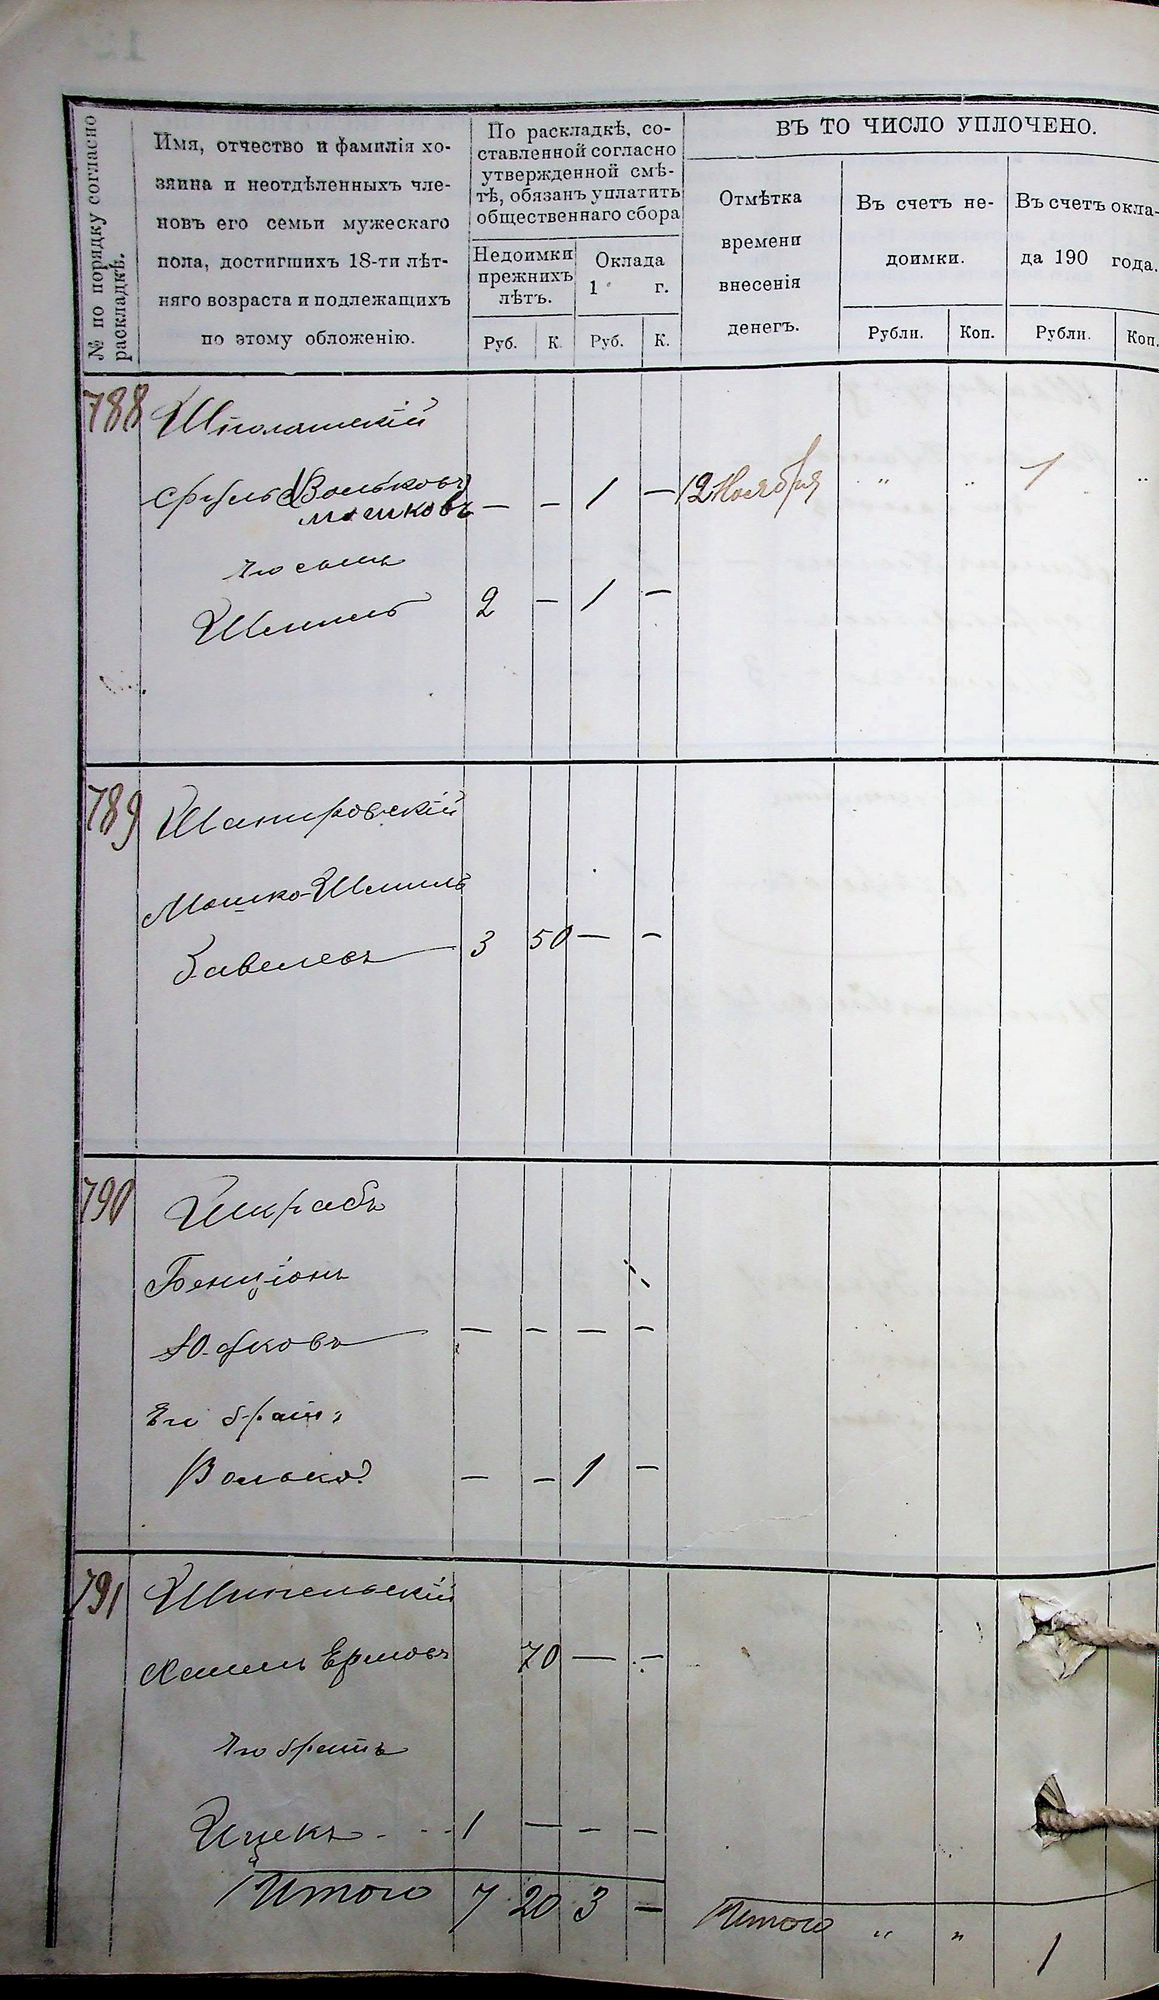 № по порядку согласно раскладкѣ.
Имя, отчество и фамилія хо-
зяина и неотдѣленныхъ чле-
новъ его семьи мужескаго
пола, достигшихъ 18-ти лѣт-
няго возраста и подлежащихъ
по этому обложенію.
По раскладкѣ, со-
ставленной согласно
утвержденной смѣ-
тѣ, обязанъ уплатить
общественнаго сбора
Недоимки
прежнихъ
лѣтъ.
Оклада
1 г.
Руб. К. Руб. К.
ВЪ ТО ЧИСЛО УПЛОЧЕНО.
Отмѣтка
времени
внесенія
денегъ.
Въ счетъ не-
доимки.
Въ счетъ окла-
да 190 года.
Рубли. Коп. Рубли. Коп.
788
Вольковъ
мошковъ — — 1 — 12 Ноября " " 1 "
его сынъ
Шмиль 2 — 1 —
789 Шапировскій
Мошко-Шмиль
Завелевъ 3 50 — —
790 Шкрабъ
Бенціонъ
Юдковъ — — — —
Его братъ
Волько — — 1 —
791 Шпигельскій
Хаимъ Ершовъ 70 — —
его братъ
Ицекъ 1 — — —
Итого 7 20 3 — Итого " " 1